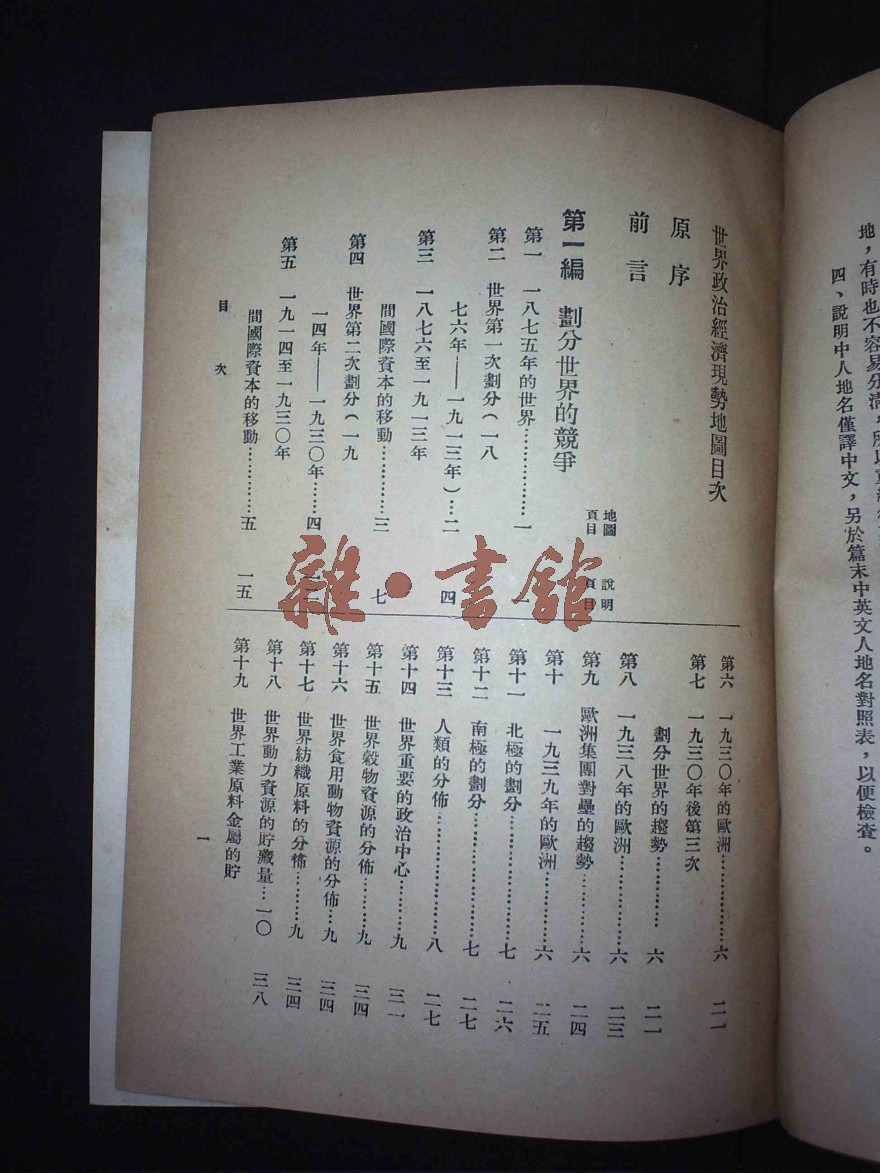 地，有時也不容易分清，所以
四、說明中人地名僅譯中文，另於篇末中英文人地名對照表，以便檢查。
世界政治經濟現勢地圖目次
原序
前言
地圖頁目
說明頁目
第一編 劃分世界的競爭
第一 一八七五年的世界……………一 一
第二 世界第一次劃分（一八
七六年——一九一三年）…二 四
第三 一八七六至一九一三年
間國際資本的移動…………三 七
第四 世界第二次劃分（一九
一四年——一九三〇年……四
第五 一九一四至一九三〇年
間國際資本的移動…………五 一五
目次
第六 一九三〇年的歐洲……………六 二一
第七 一九三〇年後第三次
劃分世界的趨勢…………六 二一
第八 一九三八年的歐洲……………六 二三
第九 歐洲集團對壘的趨勢…………六 二四
第十 一九三九年的歐洲……………六 二五
第十一 北極的劃分…………………七 二六
第十二 南極的劃分…………………七 二七
第十三 人類的分佈…………………八 二七
第十四 世界重要的政治中心………九 三一
第十五 世界穀物資源的分佈………九 三四
第十六 世界食用動物資源的分佈…九 三四
第十七 世界紡織原料的分佈………九 三四
第十八 世界動力資源的貯藏量…一〇 三八
第十九 世界工業原料金屬的貯
一
雜·書館